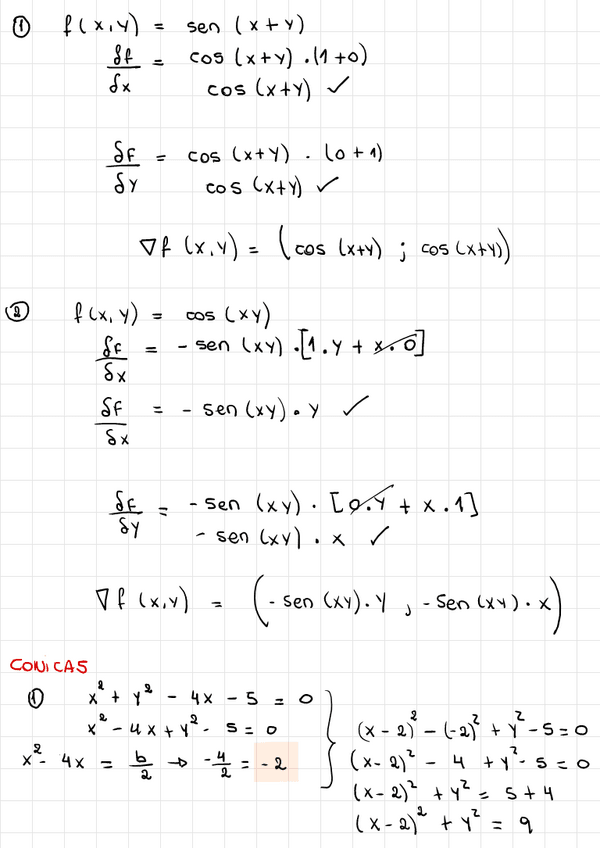 ① f(x,y) = sen (x+y)
δf/δx = cos (x+y) . (1+0)
cos (x+y) ✓
δF/δy = cos (x+y) . (0+1)
cos (x+y) ✓
∇f (x,y) = (cos (x+y) ; cos (x+y))
② f(x,y) = cos (xy)
δf/δx = - sen (xy) . [1.y + x.0]
δF/δx = - sen (xy) . y ✓
δF/δy = - sen (xy) . [0.y + x.1]
- sen (xy) . x ✓
∇f (x,y) = (- sen (xy) . y , - sen (xy) . x)
CONICAS
① x² + y² - 4x - 5 = 0
x² - 4x + y² - 5 = 0
x² - 4x = b/2 → -4/2 = -2
(x - 2)² - (-2)² + y² - 5 = 0
(x - 2)² - 4 + y² - 5 = 0
(x - 2)² + y² = 5 + 4
(x - 2)² + y² = 9